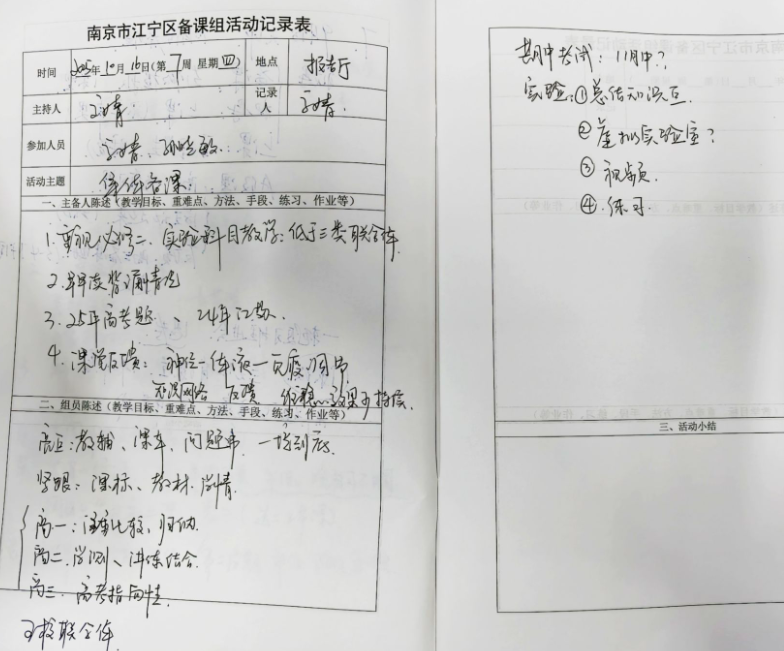 南京市江宁区备课组活动记录表
时间 2025年10月16日(第7周 星期四) 地点 报告厅
主持人 记录人
参加人员
活动主题 集体备课
一、主备人陈述（教学目标、重难点、方法、手段、练习、作业等）
1. 重视必修二、实验科目教学：低于三类联合体
2. 早读背诵情况
3. 25年高考题、24年江苏.
4. 课堂反馈：神经—体液—免疫 调节
网络 反馈
二、组员陈述（教学目标、重难点、方法、手段、练习、作业等）
高三：教辅、课本、问题串 一讲到底
紧跟：课标、教材、学情
高一：注重比较、归纳.
高二. 学测、讲练结合
高三. 高考指向性.
联合体
期中考试：11月中？
实验：①总结知识点.
②虚拟实验室？
③视频.
④练习.
三、活动小结